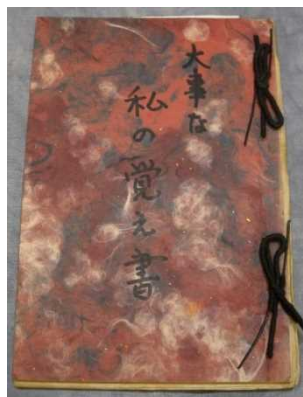 大事な
私の覚え書